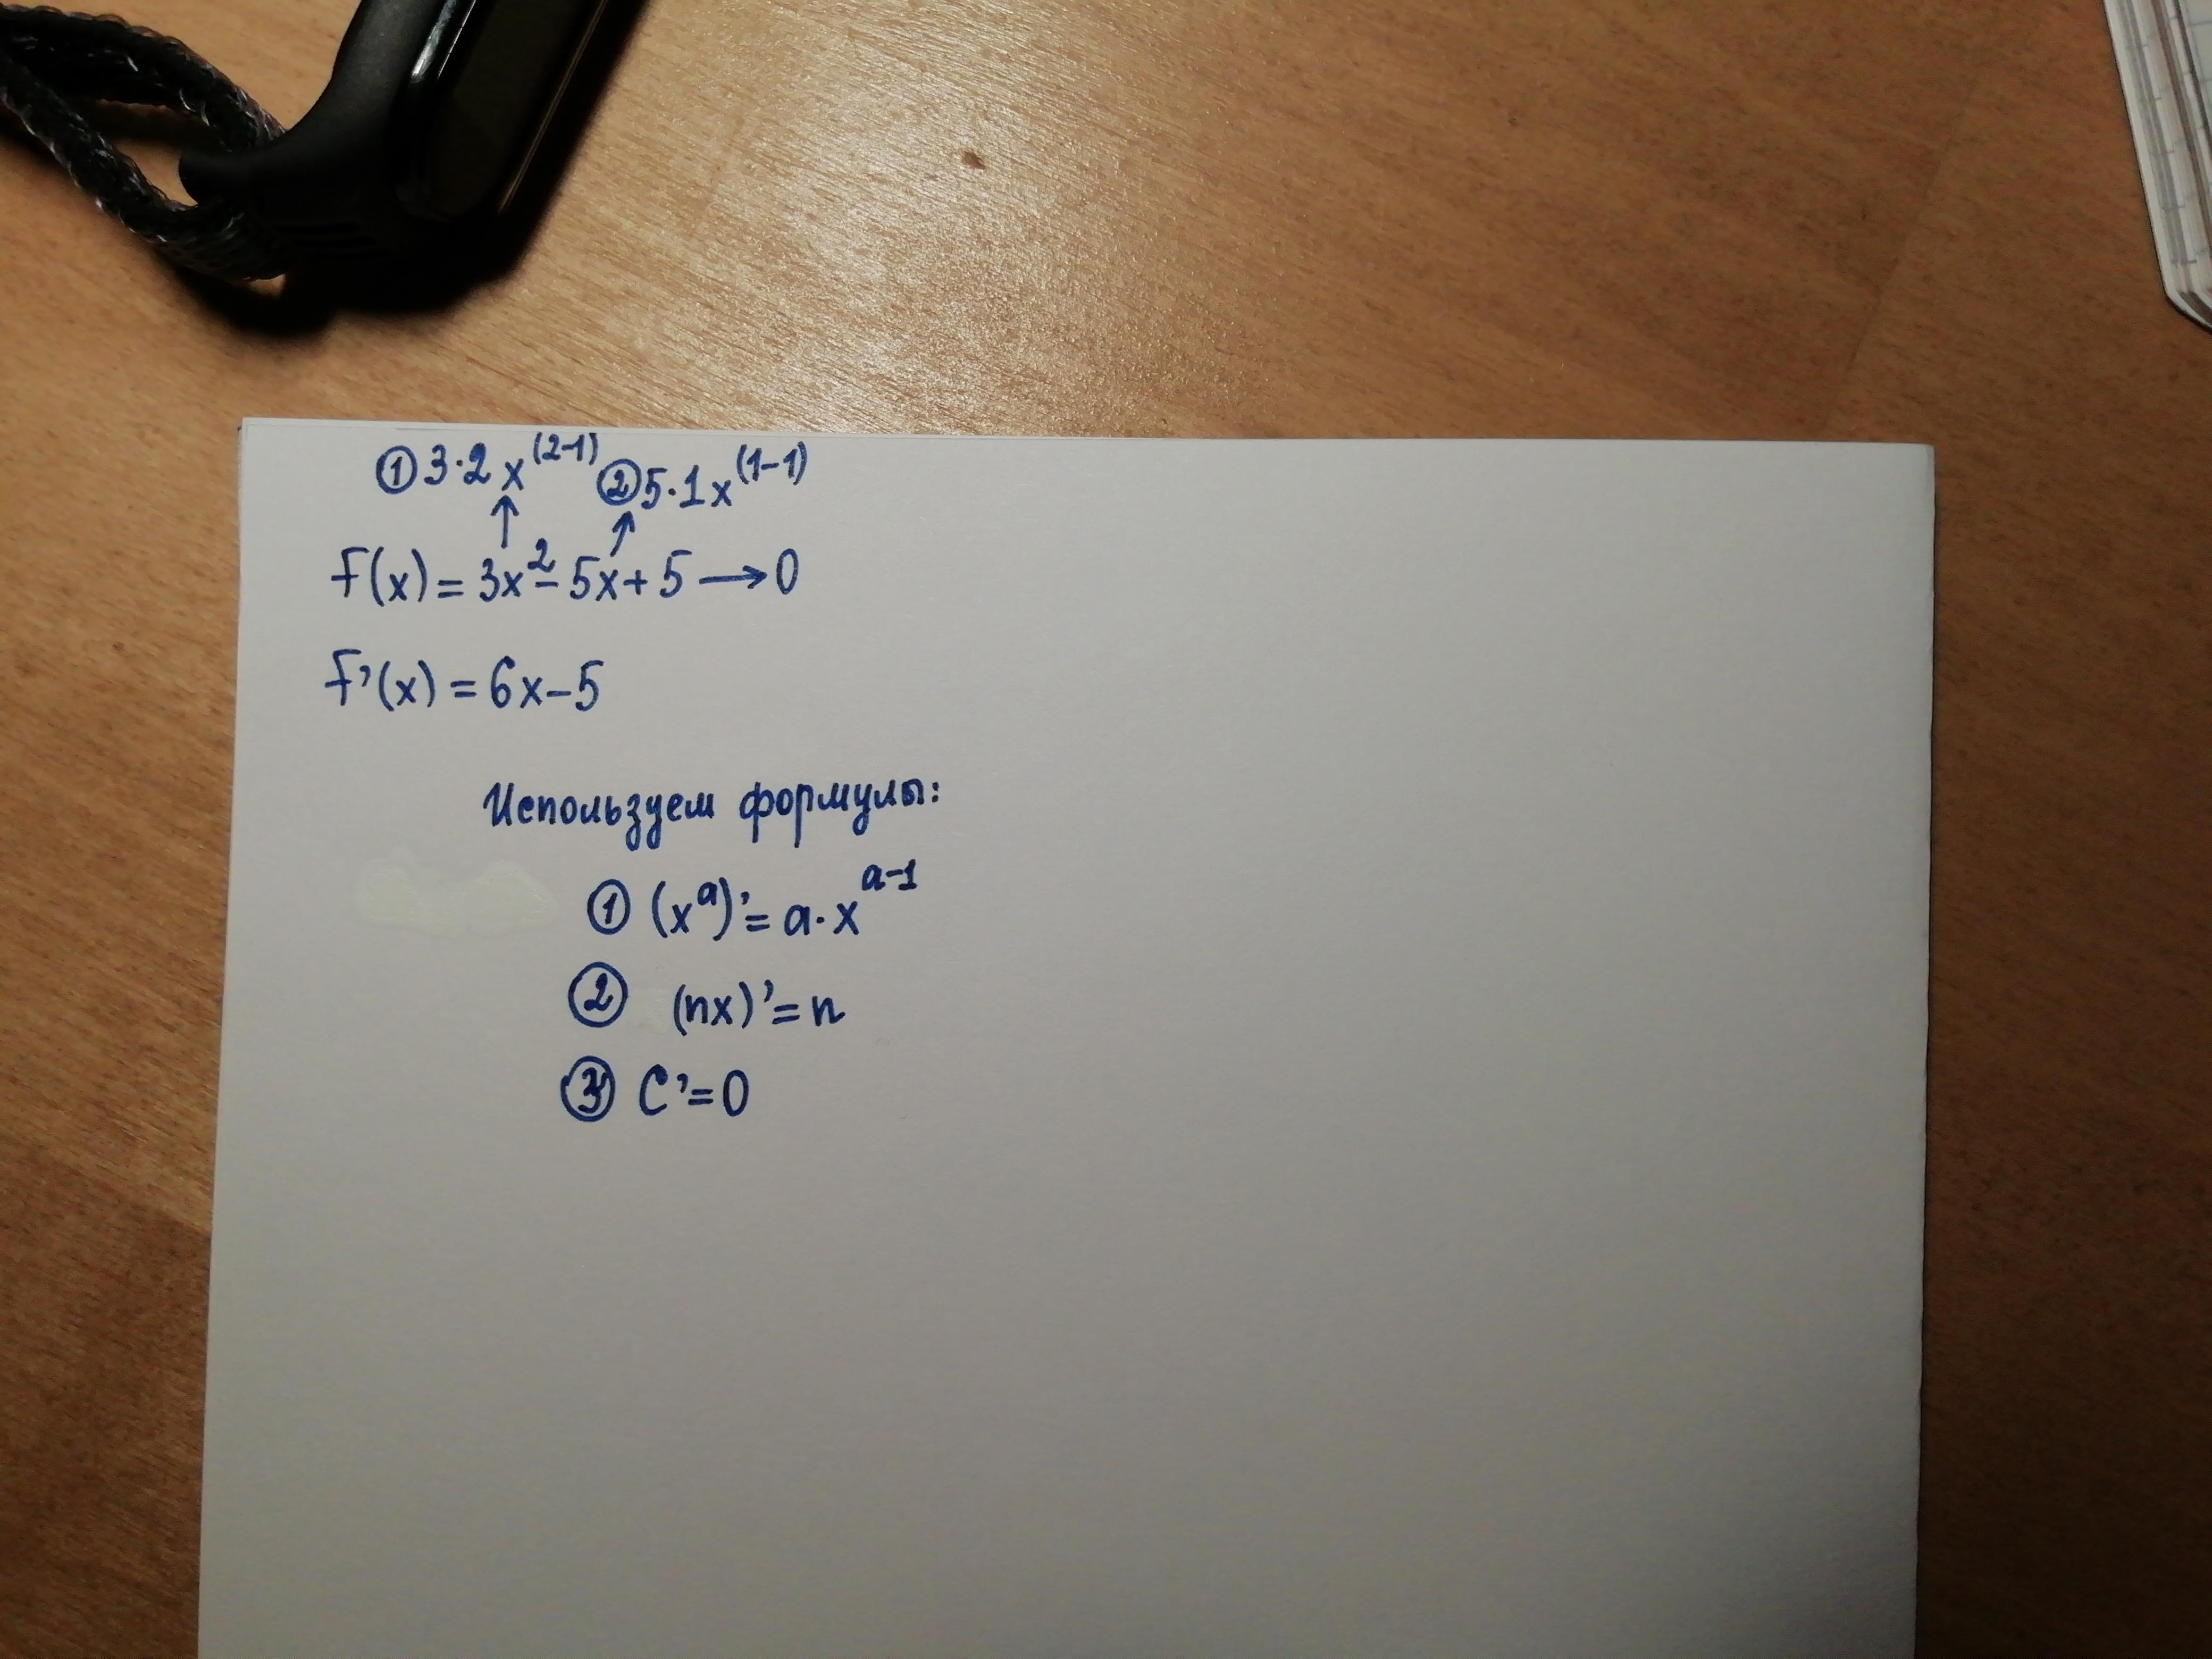 ① 3·2x^(2-1) ② 5·1x^(1-1)
↑ ↑
f(x) = 3x² - 5x + 5 → 0
f'(x) = 6x - 5
Используем формулы:
① (x^a)' = a·x^(a-1)
② (nx)' = n
③ C' = 0